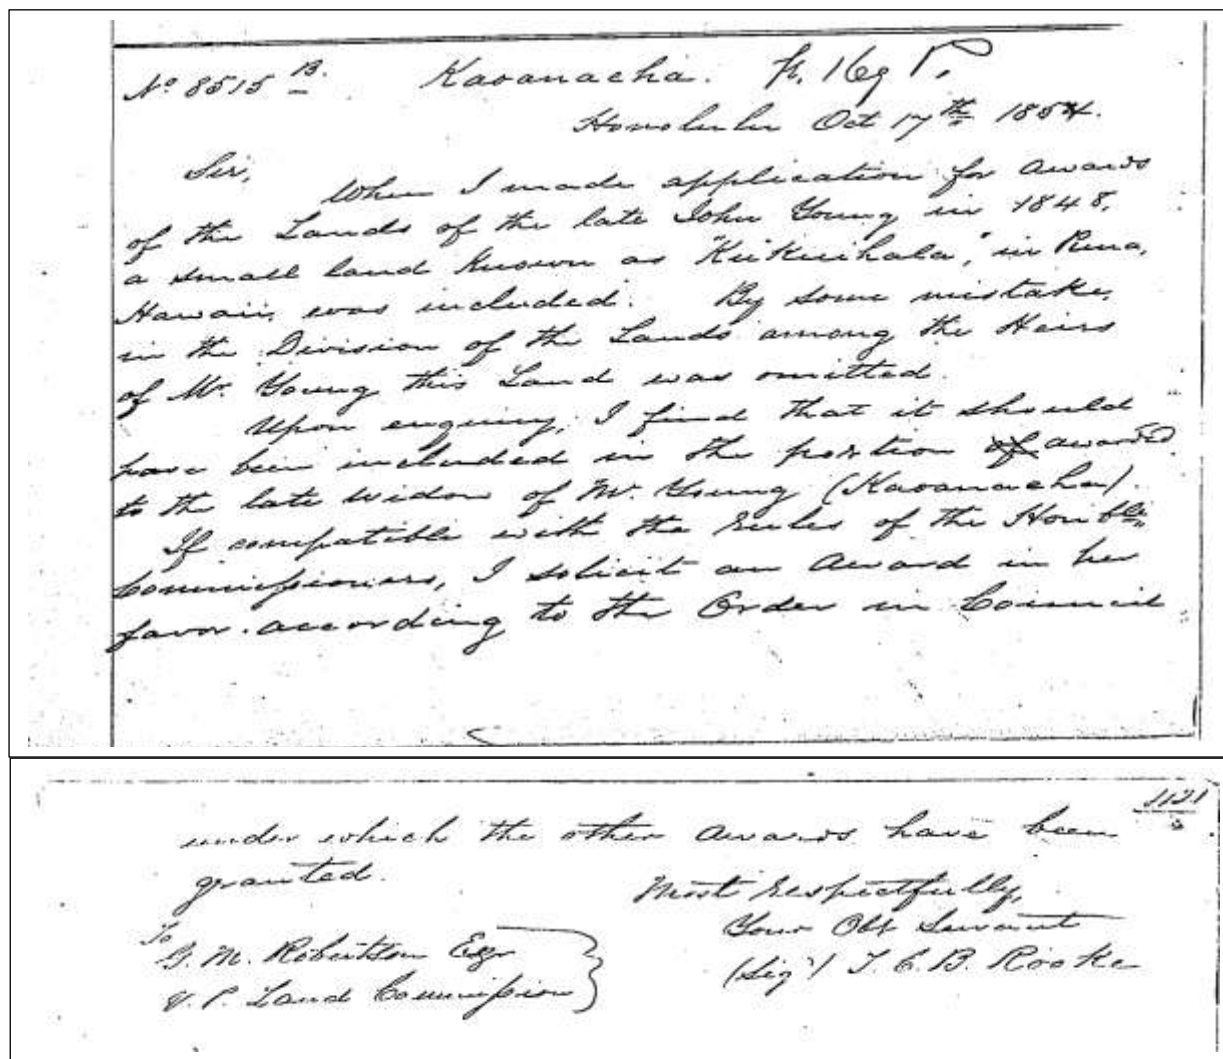 No 8515 B. Kaoanaeha. fr. 169 P.
Honolulu Oct 17th 1854.
Sir,
When I made application for awards
of the Lands of the late John Young in 1848,
a small land known as "Kukuihala," in Puna,
Hawaii, was included. By some mistake,
in the Division of the Lands among the Heirs
of Mr. Young this Land was omitted.
Upon enquiry, I find that it should
have been included in the portion of awarded
to the late widow of Mr. Young (Kaoanaeha).
If compatible with the rules of the Honble
Commissioners, I solicit an Award in her
favor according to the Order in Council
1121
under which the other awards have been
granted.
Most respectfully,
Your Obt Servant
(Sigd) T. C. B. Rooke
To
G. M. Robertson Esqr
V. P. Land Commission